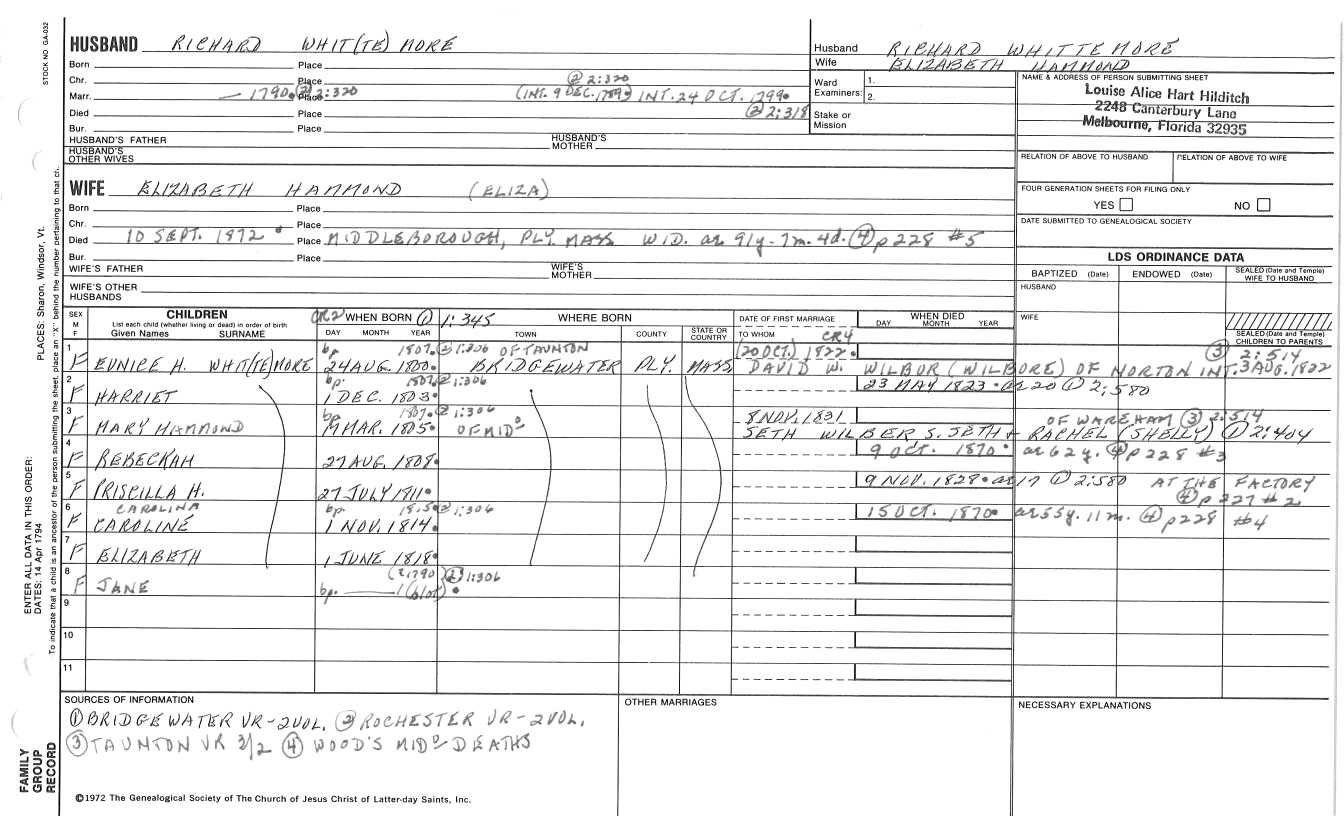 STOCK NO GA-032
HUSBAND RICHARD WHIT(TE) MORE
Born Place
Chr. Place ② 2:320
Marr. — 1790. ② 2:320 Place (INT. 9 DEC. 1789) INT. 24 OCT. 1799.
Died Place ② 2:318
Bur. Place
HUSBAND'S FATHER HUSBAND'S MOTHER
HUSBAND'S OTHER WIVES
Husband RICHARD WHITTEMORE
Wife ELIZABETH HAMMOND
Ward Examiners: 1. 2.
Stake or Mission
NAME & ADDRESS OF PERSON SUBMITTING SHEET
Louise Alice Hart Hilditch
2248 Canterbury Lane
Melbourne, Florida 32935
RELATION OF ABOVE TO HUSBAND RELATION OF ABOVE TO WIFE
FOUR GENERATION SHEETS FOR FILING ONLY
YES NO
DATE SUBMITTED TO GENEALOGICAL SOCIETY
WIFE ELIZABETH HAMMOND (ELIZA)
Born Place
Chr. Place
Died 10 SEPT. 1872 Place MIDDLEBOROUGH, PLY. MASS WID. ae 91y. 7m. 4d. ④ p 228 #5
Bur. Place
WIFE'S FATHER WIFE'S MOTHER
WIFE'S OTHER HUSBANDS
LDS ORDINANCE DATA
BAPTIZED (Date) ENDOWED (Date) SEALED (Date and Temple) WIFE TO HUSBAND
HUSBAND
WIFE
SEALED (Date and Temple) CHILDREN TO PARENTS
SEX M F
CHILDREN
List each child (whether living or dead) in order of birth
Given Names SURNAME
CR2 WHEN BORN ① 1:345 WHERE BORN
DAY MONTH YEAR TOWN COUNTY STATE OR COUNTRY
DATE OF FIRST MARRIAGE
TO WHOM CR4
WHEN DIED
DAY MONTH YEAR
1 bp 1807. ② 1:306 OF TAUNTON (20 OCT.) 1822. ③ 2:514
F EUNICE H. WHIT(TE)MORE 24 AUG. 1800. BRIDGEWATER PLY. MASS DAVID W. WILBUR (WILBORE) OF NORTON INT. 3 AUG. 1822
2 bp. 1807 ② 1:306 23 MAY 1823. ae 20 ① 2:580
F HARRIET 1 DEC. 1803.
3 bp 1807. ② 1:306 8 NOV. 1831 OF WAREHAM ③ 2:514
F MARY HAMMOND MAR. 1805. OF MIDº SETH WILBER S. SETH + RACHEL (SHELLY) ① 2:404
4 9 OCT. 1870. ae 62 y. ④ p 228 #3
F REBECKAH 27 AUG. 1808.
5 9 NOV. 1828. ae 17 ① 2:580 AT THE FACTORY
F PRISCILLA H. 27 JULY 1811. ④ p 227 #2
6 CAROLINA bp 1815 ② 1:306 15 OCT. 1870. ae 55y. 11m. ④ p 228 #4
F CAROLINE 1 NOV. 1814.
7
F ELIZABETH 1 JUNE 1818.
8 (2,1790) ② 1:306
F JANE bp. — 1 (blot).
9
10
11
SOURCES OF INFORMATION
① BRIDGEWATER VR-2VOL. ② ROCHESTER VR-2VOL.
③ TAUNTON VR 3/2 ④ WOOD'S MIDº DEATHS
OTHER MARRIAGES
NECESSARY EXPLANATIONS
©1972 The Genealogical Society of The Church of Jesus Christ of Latter-day Saints, Inc.
FAMILY GROUP RECORD
ENTER ALL DATA IN THIS ORDER:
DATES: 14 Apr 1794
PLACES: Sharon, Windsor, Vt.
To indicate that a child is an ancestor of the person submitting the sheet, place an "X" behind the number pertaining to that